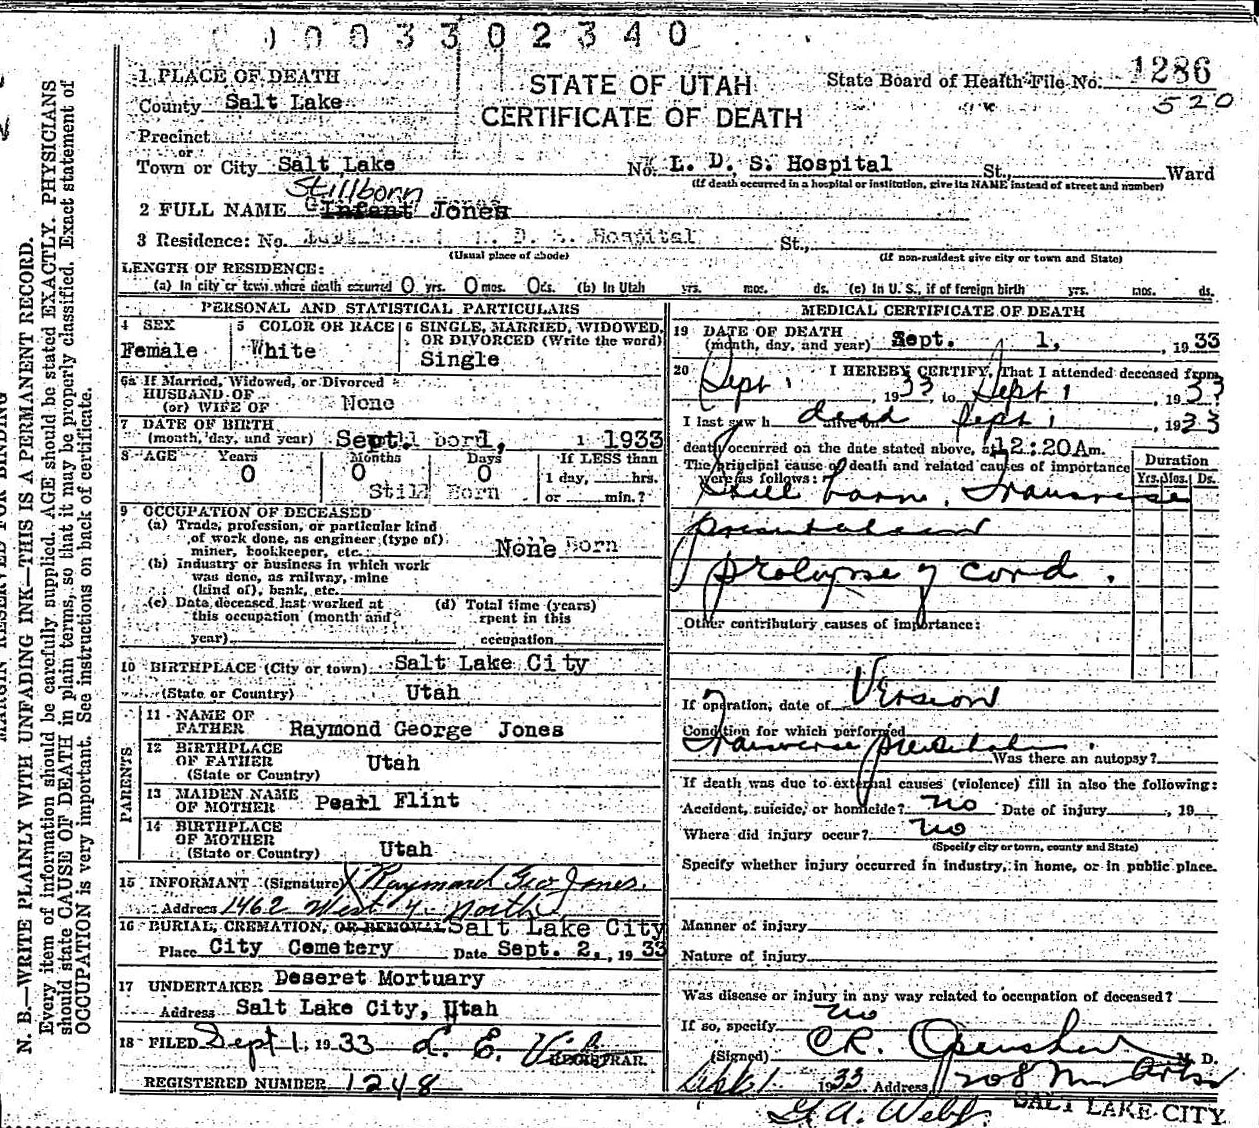 0003302340
1 PLACE OF DEATH
STATE OF UTAH
State Board of Health File No. 1286
County Salt Lake
520
CERTIFICATE OF DEATH
Precinct
or
Town or City Salt Lake No. L. D. S. Hospital St., Ward
(If death occurred in a hospital or institution, give its NAME instead of street and number)
Stillborn
2 FULL NAME Infant Jones
3 Residence: No. L. D. S. Hospital St.,
(Usual place of abode) (If non-resident give city or town and State)
LENGTH OF RESIDENCE:
(a) In city or town where death occurred 0 yrs. 0 mos. 0 ds. (b) In Utah yrs. mos. ds. (c) In U. S., if of foreign birth yrs. mos. ds.
PERSONAL AND STATISTICAL PARTICULARS
4 SEX
Female
5 COLOR OR RACE
White
6 SINGLE, MARRIED, WIDOWED, OR DIVORCED (Write the word)
Single
6a If Married, Widowed, or Divorced
HUSBAND OF
(or) WIFE OF None
7 DATE OF BIRTH
(month, day, and year) Sept. 1 1933
8 AGE Years Months Days If LESS than
0 0 0 1 day, hrs.
Still Born or min.?
9 OCCUPATION OF DECEASED
(a) Trade, profession, or particular kind
of work done, as engineer (type of)
miner, bookkeeper, etc. None Born
(b) Industry or business in which work
was done, as railway, mine
(kind of), bank, etc.
(c) Date deceased last worked at (d) Total time (years)
this occupation (month and spent in this
year) occupation
10 BIRTHPLACE (City or town) Salt Lake City
(State or Country) Utah
PARENTS
11 NAME OF
FATHER Raymond George Jones
12 BIRTHPLACE
OF FATHER Utah
(State or Country)
13 MAIDEN NAME
OF MOTHER Pearl Flint
14 BIRTHPLACE
OF MOTHER
(State or Country) Utah
15 INFORMANT (Signature) X Raymond Geo Jones.
Address 1462 West 4 North
16 BURIAL, CREMATION, OR REMOVAL Salt Lake City
Place City Cemetery Date Sept. 2, 1933
17 UNDERTAKER Deseret Mortuary
Address Salt Lake City, Utah
18 FILED Sept 1, 1933 L. E.
REGISTRAR.
REGISTERED NUMBER 1248
MEDICAL CERTIFICATE OF DEATH
19 DATE OF DEATH
(month, day, and year) Sept. 1, 1933
20 I HEREBY CERTIFY, That I attended deceased from
Sept 1, 1933 to Sept 1, 1933
I last saw h dead alive on Sept 1, 1933
death occurred on the date stated above, at 12:20A m.
The principal cause of death and related causes of importance
were as follows:
Duration
Yrs. Mos. Ds.
Still born. Transverse
presentation
prolapse of cord.
Other contributory causes of importance:
If operation, date of Version
Condition for which performed
Transverse presentation. Was there an autopsy?
If death was due to external causes (violence) fill in also the following:
Accident, suicide, or homicide? no Date of injury , 19
Where did injury occur? no
(Specify city or town, county and State)
Specify whether injury occurred in industry, in home, or in public place.
Manner of injury
Nature of injury
Was disease or injury in any way related to occupation of deceased?
If so, specify no
(Signed) C.R. Openshaw M. D.
Sept 1 1933 Address 208 Med Arts
G. A. Webb.
SALT LAKE CITY
MARGIN RESERVED FOR BINDING
N. B.—WRITE PLAINLY WITH UNFADING INK—THIS IS A PERMANENT RECORD.
Every item of information should be carefully supplied. AGE should be stated EXACTLY. PHYSICIANS
should state CAUSE OF DEATH in plain terms, so that it may be properly classified. Exact statement of
OCCUPATION is very important. See instructions on back of certificate.